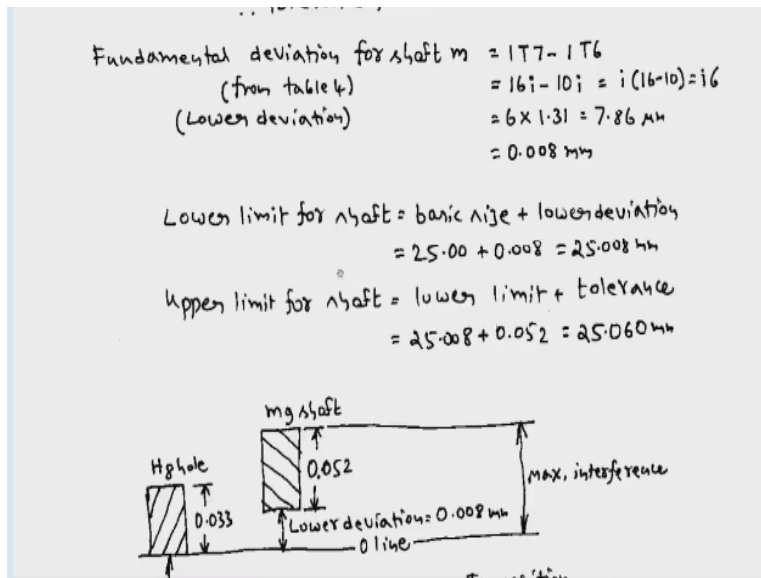 Fundamental deviation for shaft m = IT7 - IT6
(from table 4) = 16i - 10i = i(16-10) = i6
(Lower deviation) = 6 x 1.31 = 7.86 μm
= 0.008 mm
Lower limit for shaft = basic size + lower deviation
= 25.00 + 0.008 = 25.008 mm
Upper limit for shaft = lower limit + tolerance
= 25.008 + 0.052 = 25.060 mm
m9 shaft
H8 hole
0.052
Max, interference
0.033
Lower deviation = 0.008 mm
0 line